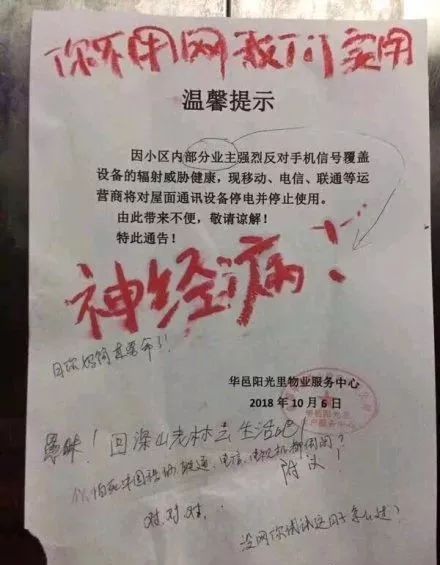 你不用网我们实用
温馨提示
因小区内部分业主强烈反对手机信号覆盖
设备的辐射威胁健康，现移动、电信、联通等运
营商将对屋面通讯设备停电并停止使用。
由此带来不便，敬请谅解！
特此通告！
神经病！
华邑阳光里物业服务中心
2018年10月6日
愚昧！回深山老林去生活吧！
附议！
对.对.对.
没网你试试这日子怎么过？